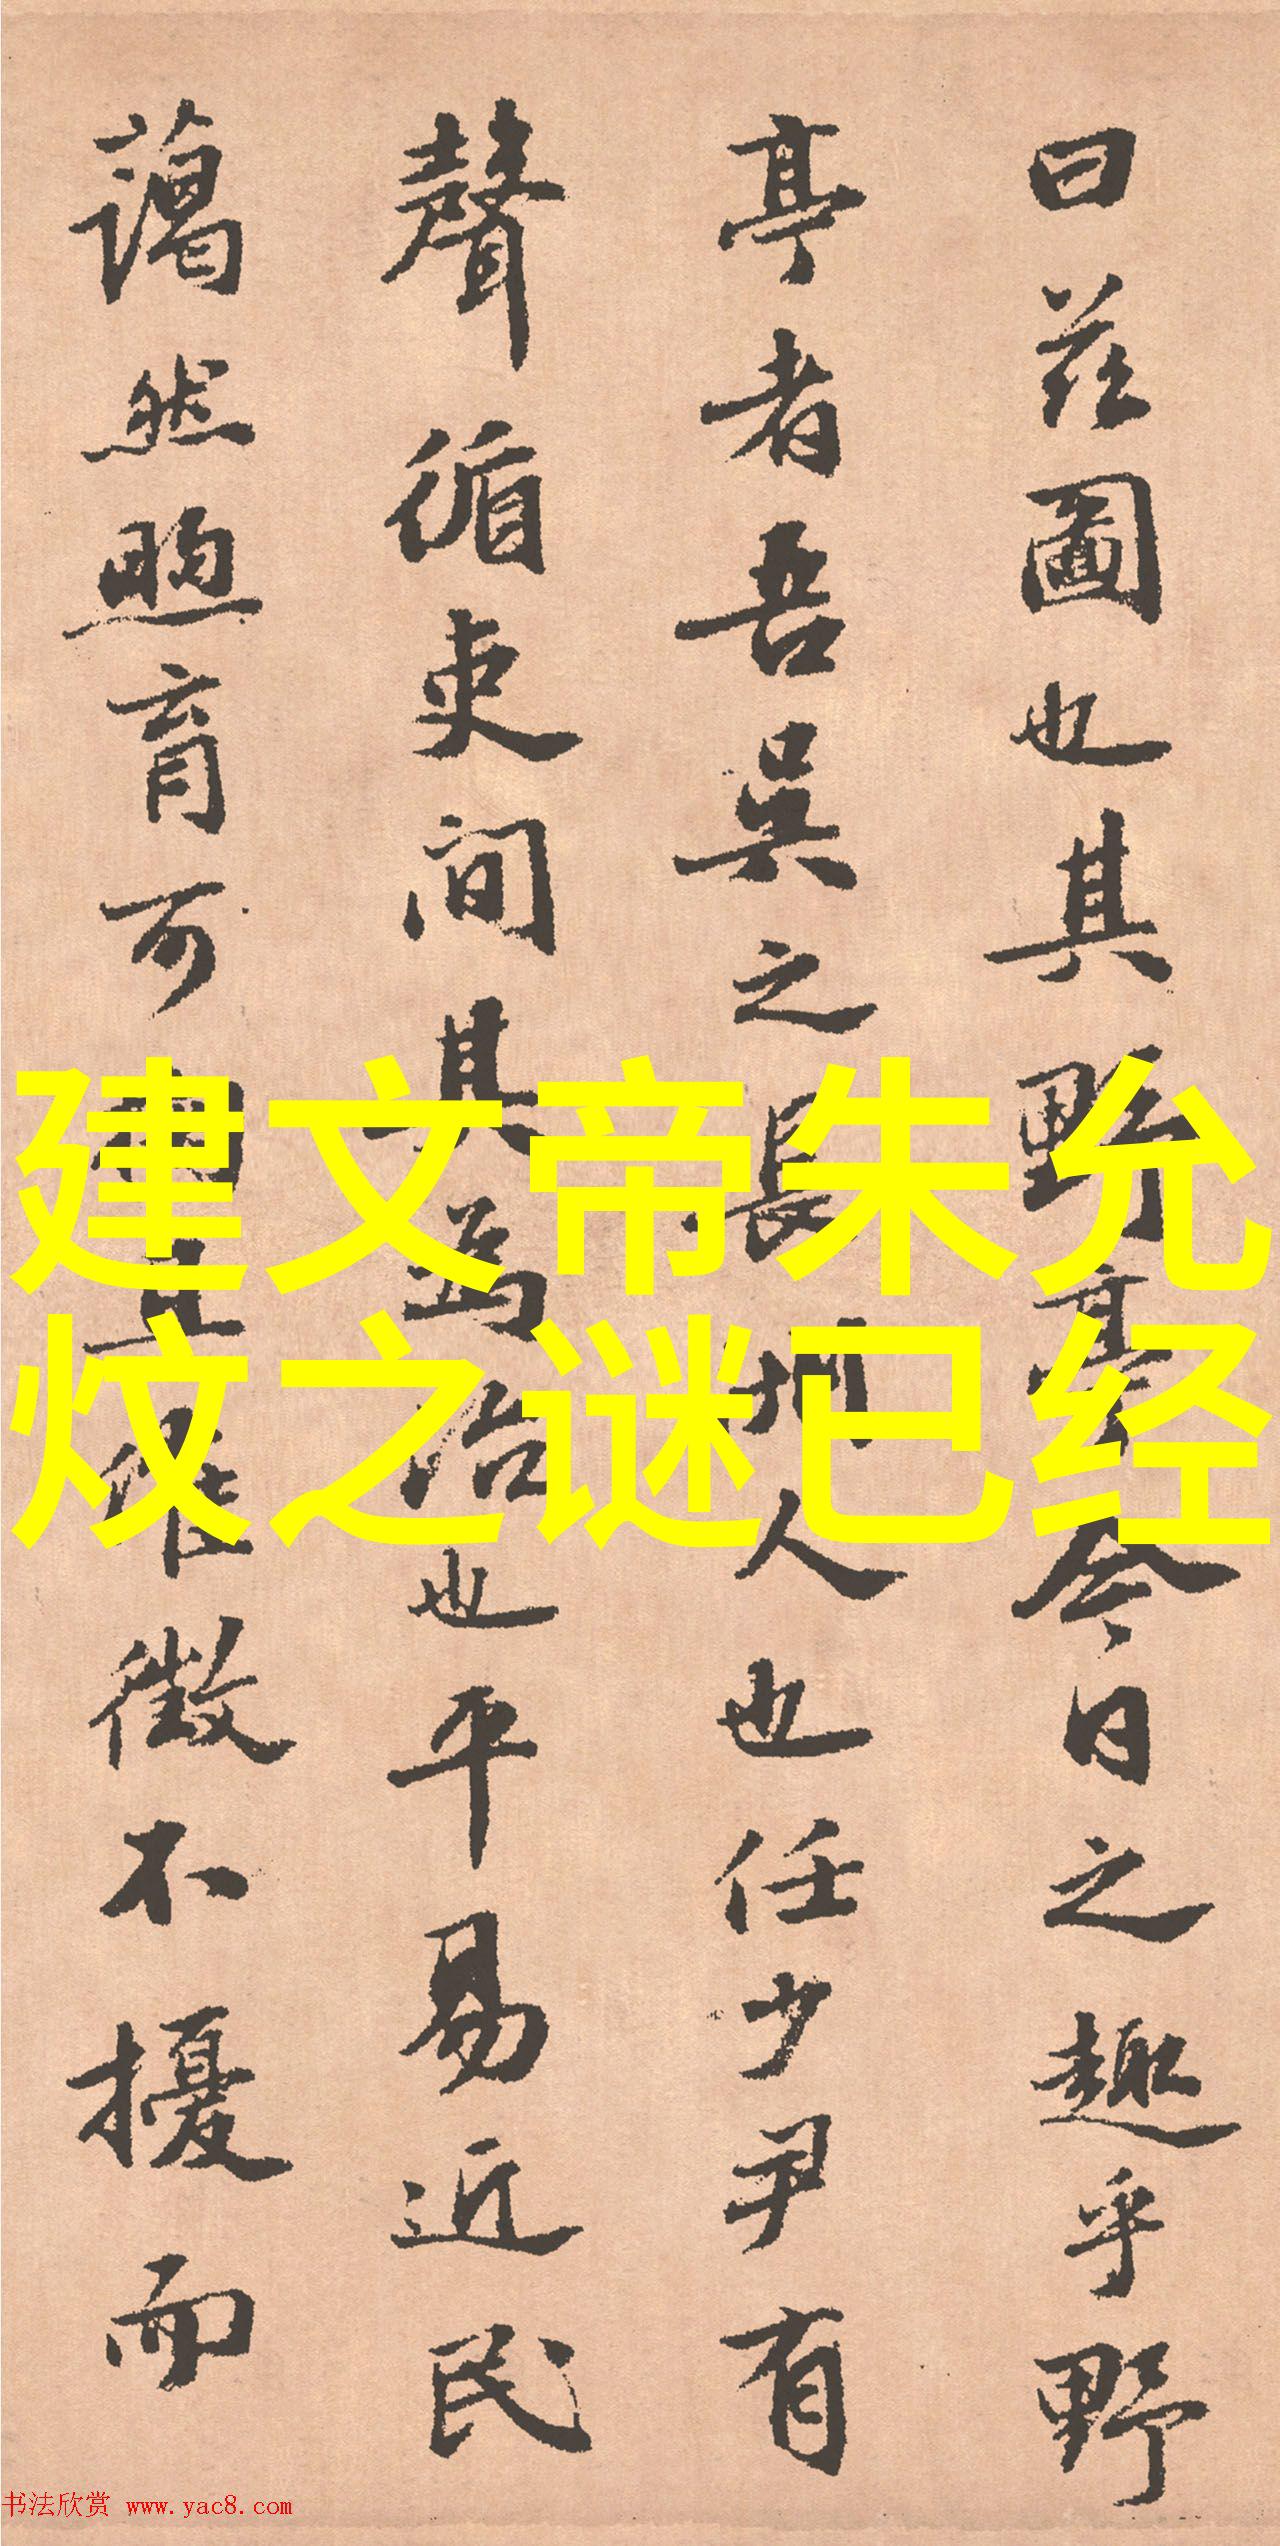 曰茲圖也其野亭今日之趣乎野
亭者吾吳之長洲人也任少尹有
聲循吏间其爲治也平易近民
藹然煦育可
徵不擾而
建文帝朱允
炆之谜已经
书法欣赏 www.yac8.com